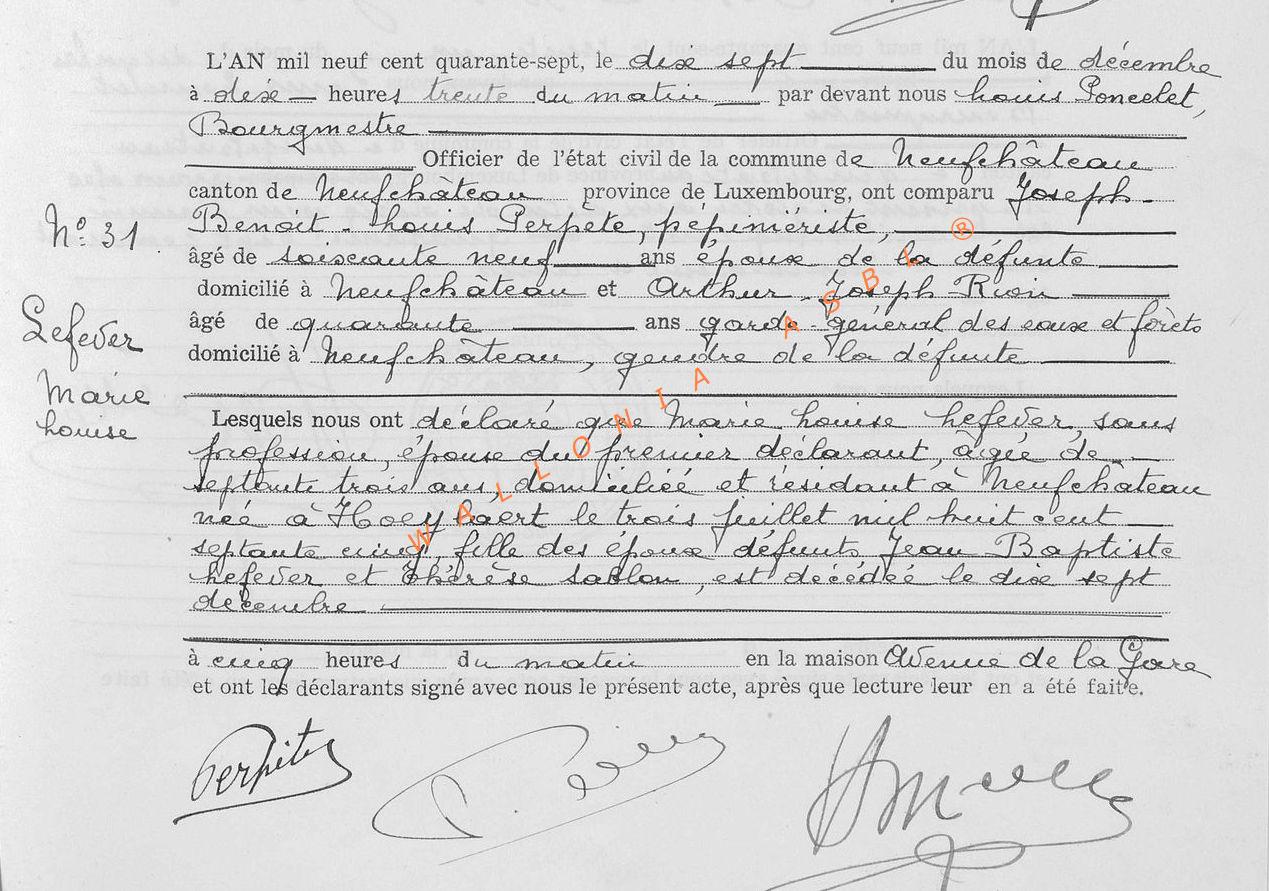 L'AN mil neuf cent quarante-sept, le dix sept du mois de décembre
à dix heures trente du matin par devant nous Louis Poncelet,
Bourgmestre
Officier de l'état civil de la commune de Neufchâteau
canton de Neufchâteau province de Luxembourg, ont comparu Joseph-
Benoit-Louis Perpète, pépiniériste,
âgé de soixante neuf ans époux de la défunte
domicilié à Neufchâteau et Arthur-Joseph Rion
âgé de quarante ans garde-général des eaux et forêts
domicilié à Neufchâteau, gendre de la défunte
Nº 31
Lefever
Marie
Louise
Lesquels nous ont déclaré que Marie Louise Lefever, sans
profession, épouse du premier déclarant, âgée de
septante trois ans, domiciliée et résidant à Neufchâteau
née à le trois juillet mil huit cent
septante cinq, fille des époux défunts Jean Baptiste
Lefever et Thérèse Sablon, est décédée le dix sept
décembre
à cinq heures du matin en la maison Avenue de la Gare
et ont les déclarants signé avec nous le présent acte, après que lecture leur en a été faite.
Perpète
WALLONIA ASBL ®